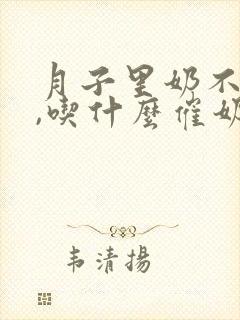 月子里奶不
,喫什麽催奶
韦清揚